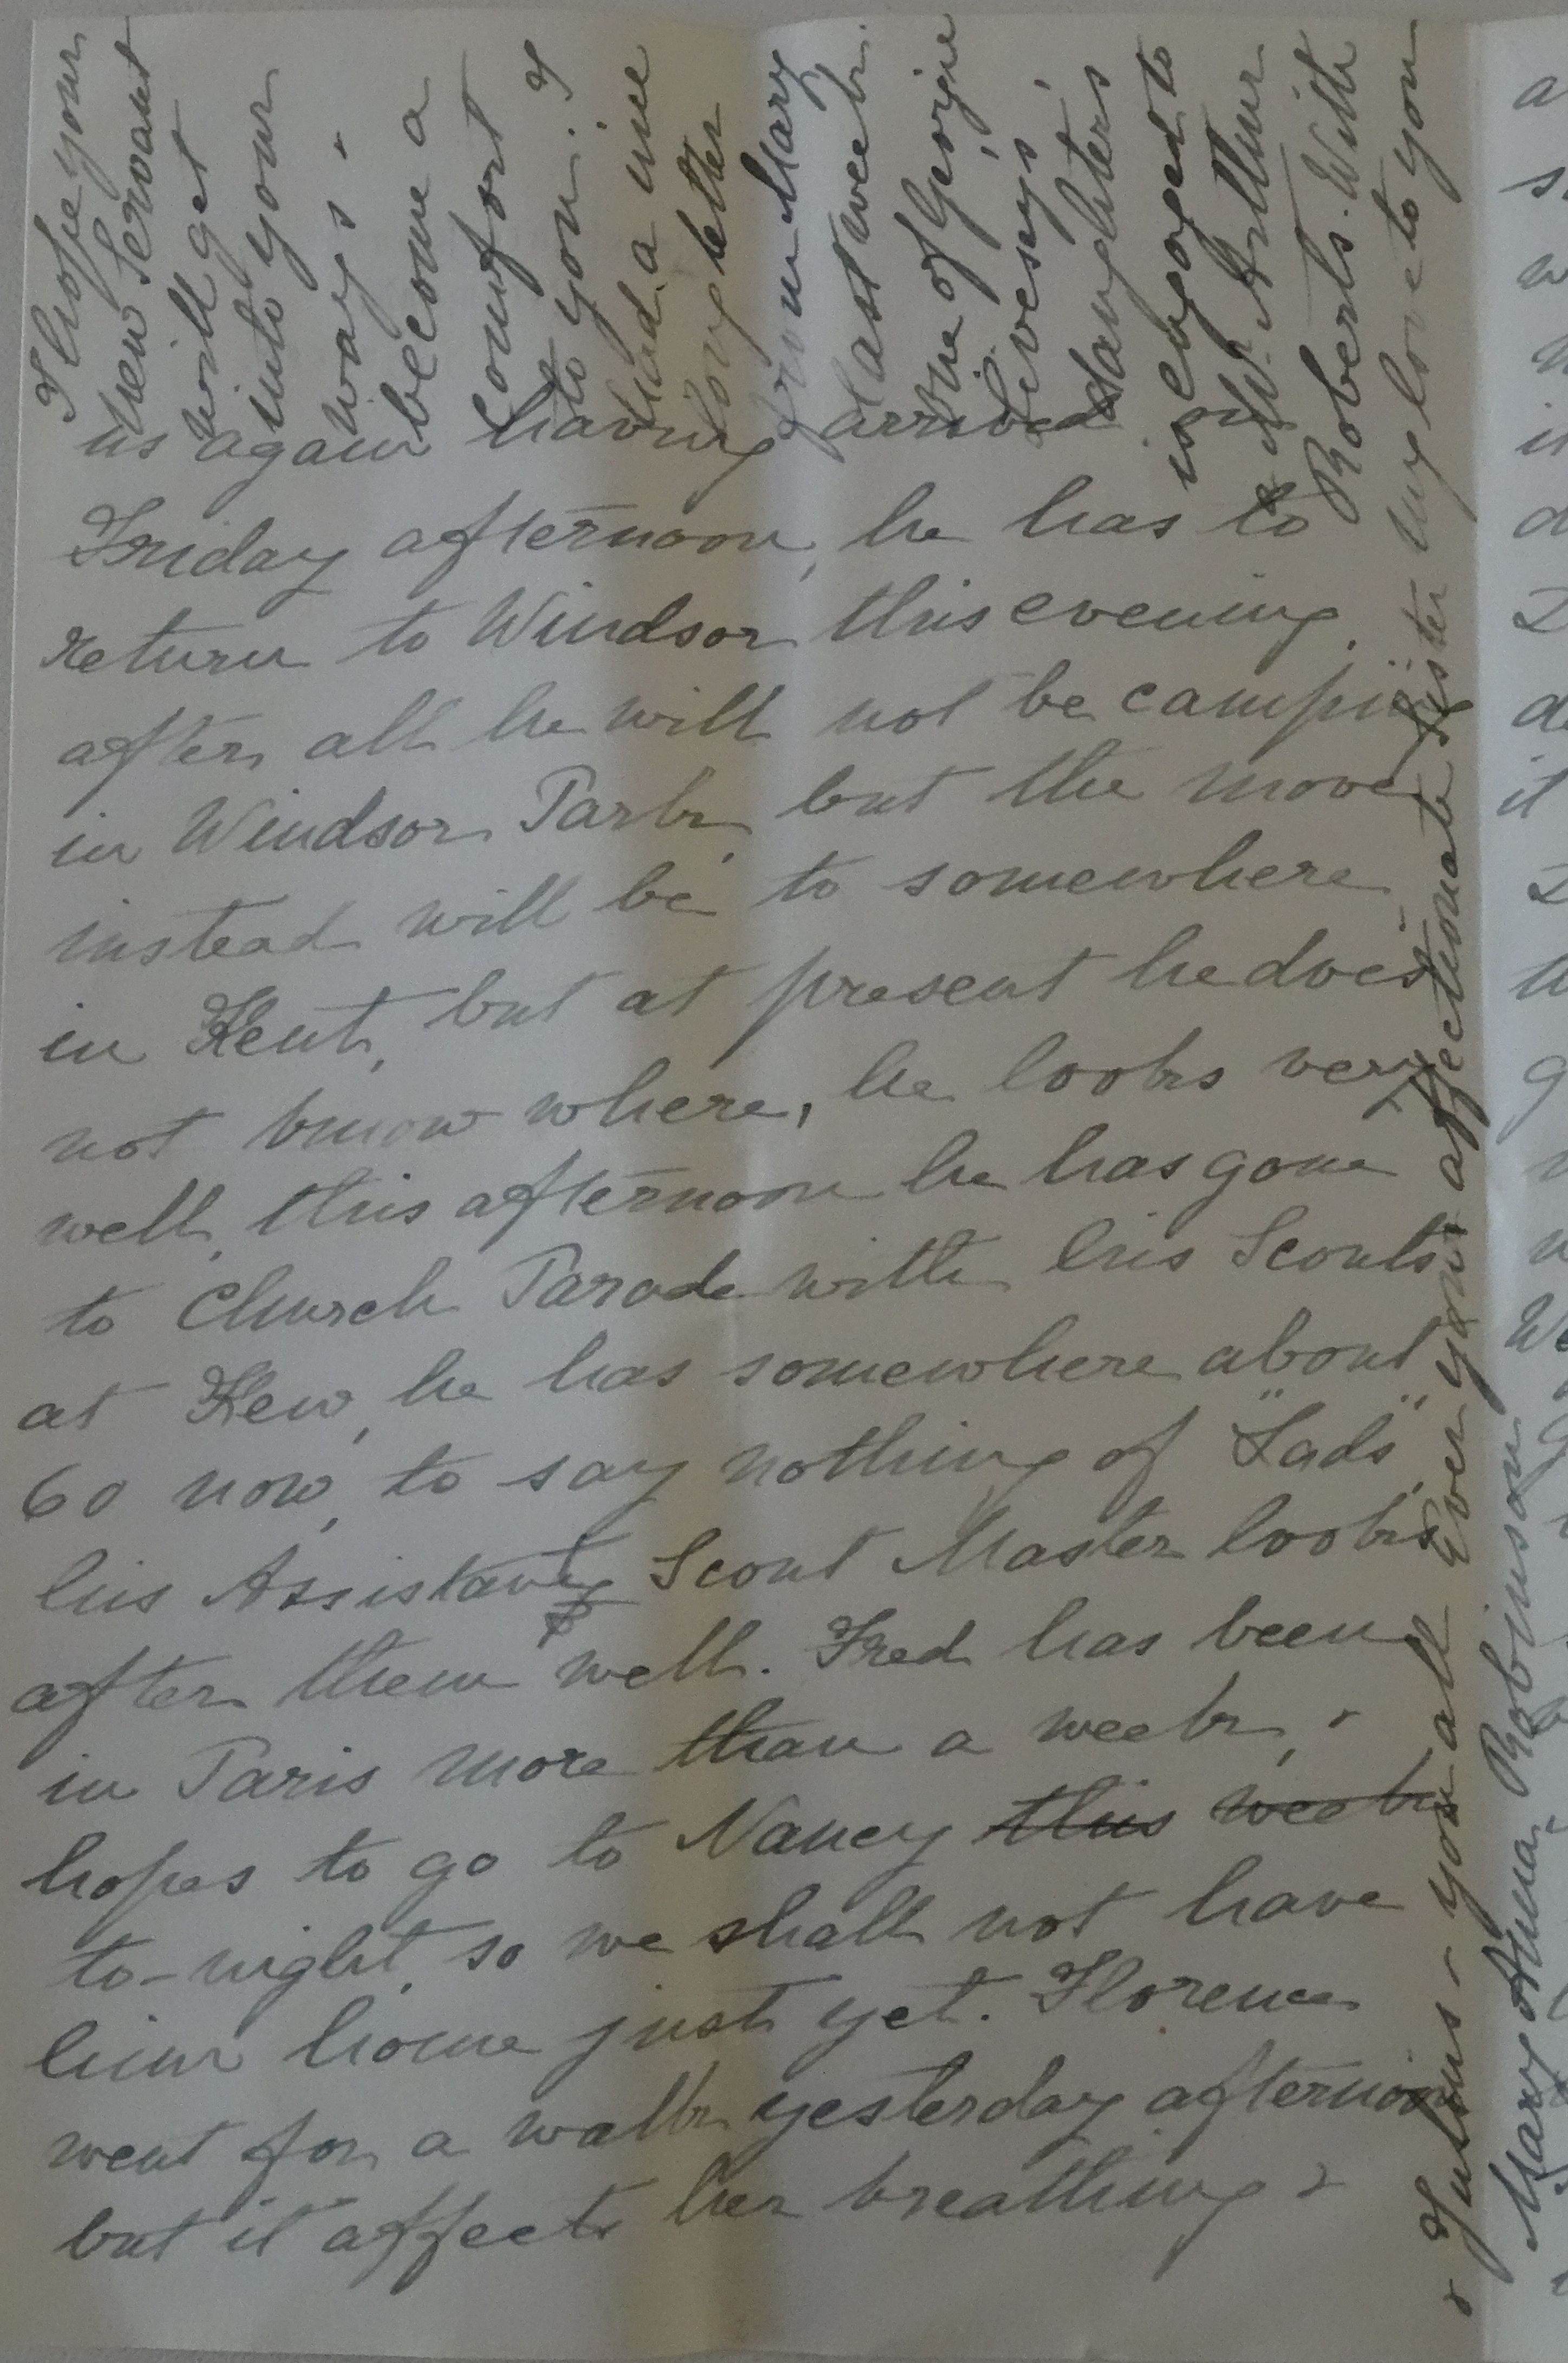 us again having arrived on
Friday afternoon, he has to
return to Windsor this evening.
after all he will not be camping
in Windsor Park, but the move
instead will be to somewhere
in Kent, but at present he does
not know where, he looks very
well, this afternoon he has gone
to Church Parade with his Scouts
at Kew, he has somewhere about
60 now, to say nothing of "Lads",
his Assistant Scout Master looks
after them well. Fred has been
in Paris more than a week, &
hopes to go to Nancy this week
to-night, so we shall not have
him home just yet. Florence
went for a walk yesterday afternoon
but it affects her breathing &
I hope your
new Servant
will get
into your
ways &
become a
comfort
to you. I
had a nice
long letter
from Mary
last week.
One of Georgie
Livesey's
daughters
is engaged to
a Mr. Arthur
Roberts. With
my love to you
& Julius & you all Ever your affectionate Sister
Mary Anna Robinson